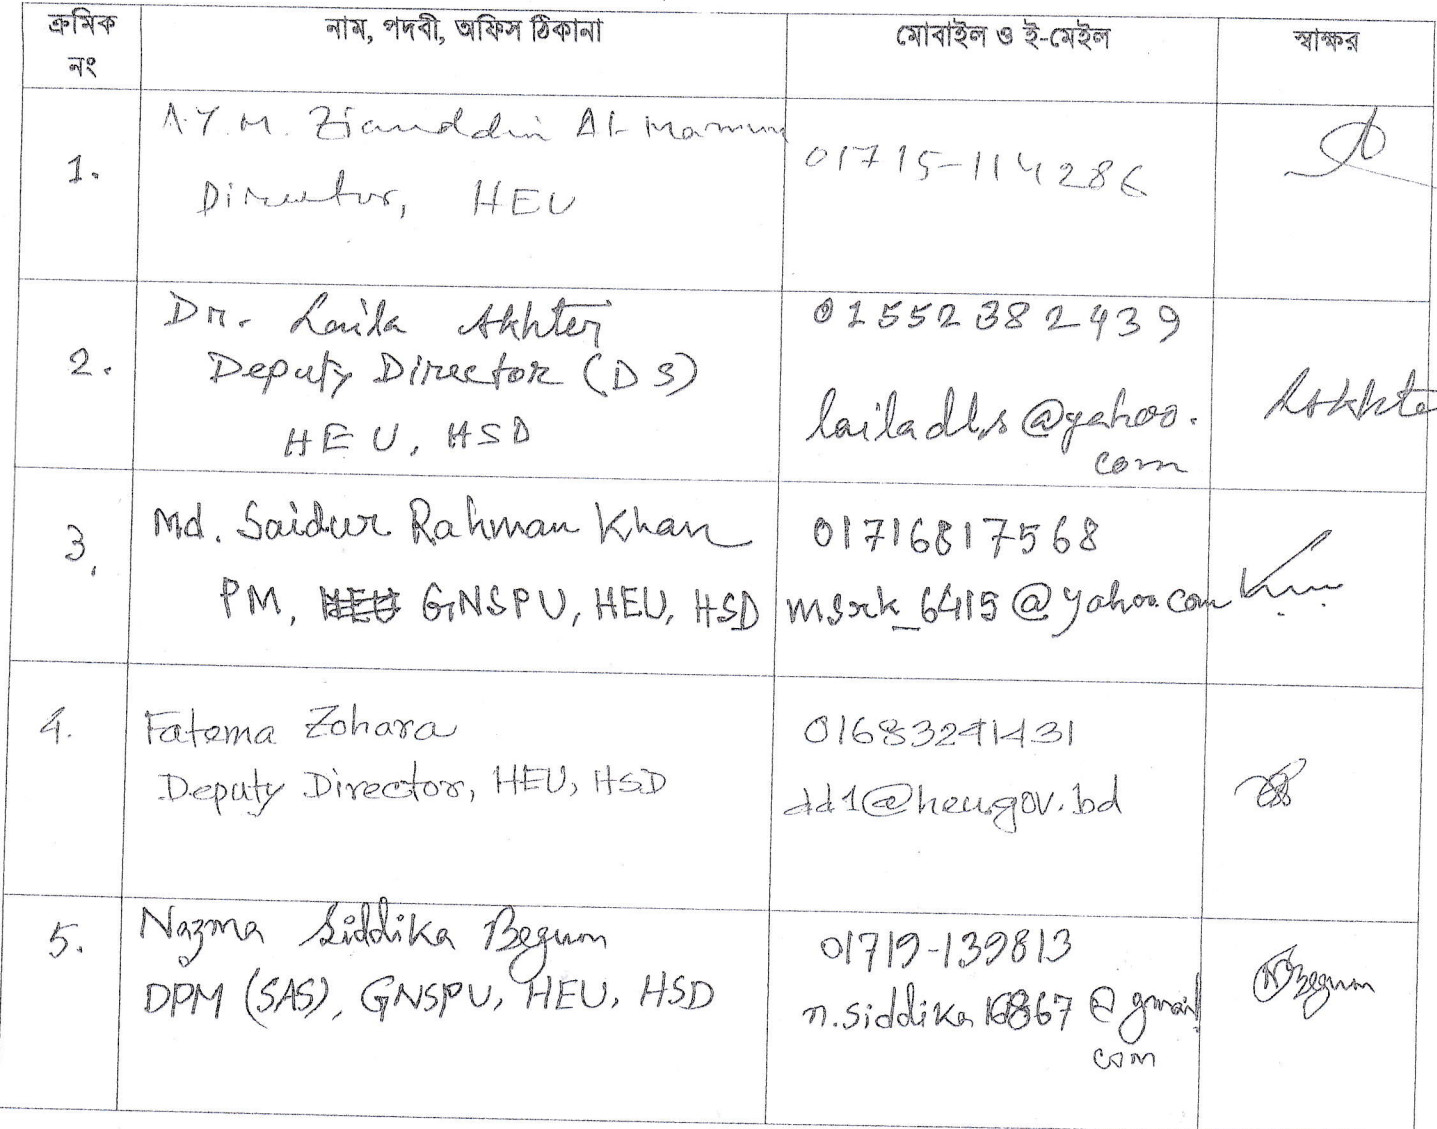 ক্রমিক নং
নাম, পদবী, অফিস ঠিকানা
মোবাইল ও ই-মেইল
স্বাক্ষর
1.
A.Y.M. Ziauddin Al-Mamun
Director, HEU
01715-114286
2.
Dr. Laila Akhter
Deputy Director (DS)
HEU, HSD
01552382439
lailadls@yahoo.
com
LAkhte
3.
Md. Saidur Rahman Khan
PM, GNSPU, HEU, HSD
01716817568
msrk_6415@yahoo.com
4.
Fatema Zohara
Deputy Director, HEU, HSD
01683291431
dd1@heu.gov.bd
5.
Nazma Siddika Begum
DPM (SAS), GNSPU, HEU, HSD
01719-139813
n.siddika16867@gmail
com
NBegum